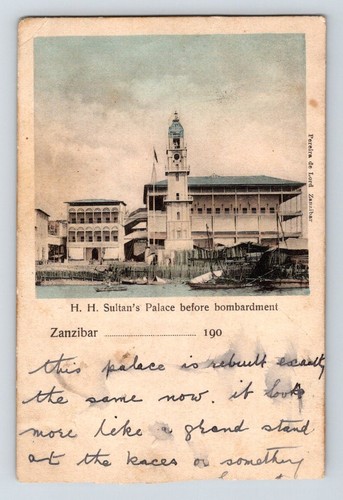 Pereira de Lord Zanzibar
H. H. Sultan's Palace before bombardment
Zanzibar 190
this palace is rebuilt exactly
the same now. it looks
more like a grand stand
at the races or something